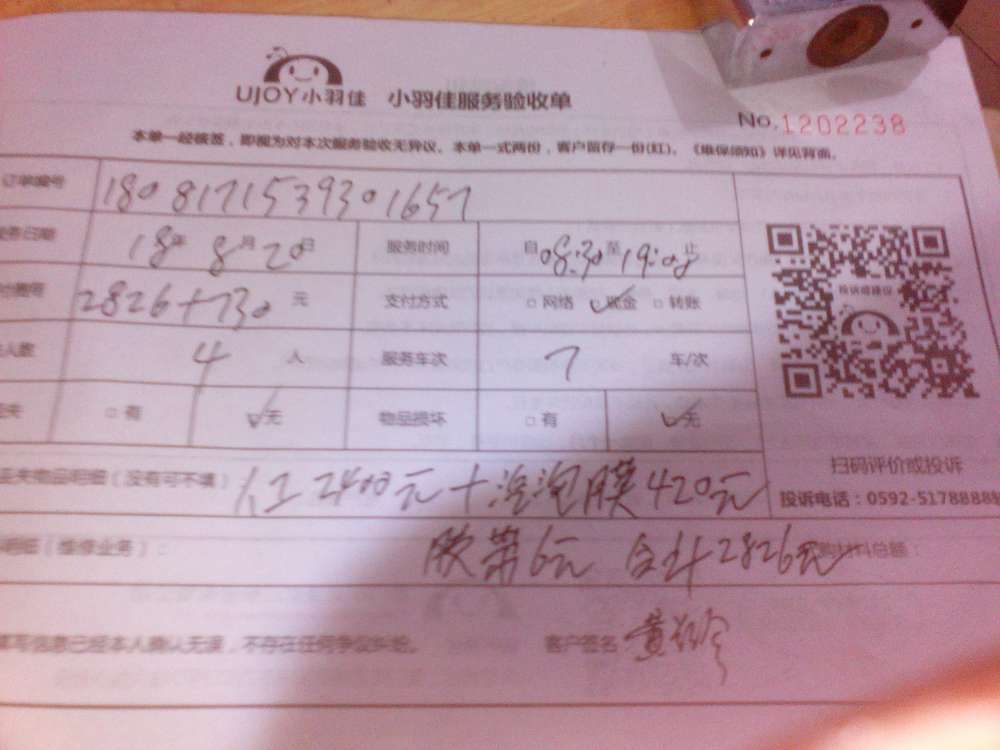 UJOY小羽佳 小羽佳服务验收单
No.1202238
本单一经核签,即视为对本次服务验收无异议。本单一式两份,客户留存一份(红)。《维保须知》详见背面。
订单编号 1808171539301657
务日期 18年8月20日 服务时间 自08:30至19:08止
2826+730元 支付方式 □网络 ☑现金 □转账
人数 4人 服务车次 7 车/次
□有 ☑无 物品损坏 □有 ☑无
投诉或建议
扫码评价或投诉
投诉电话:0592-5178888
失物品明细(没有可不填) 人工2400元+泡泡膜420元
明细(维修业务): 胶带6元 合计2826元 材料总额:
填写信息已经本人确认无误,不存在任何争议纠纷。 客户签名 黄